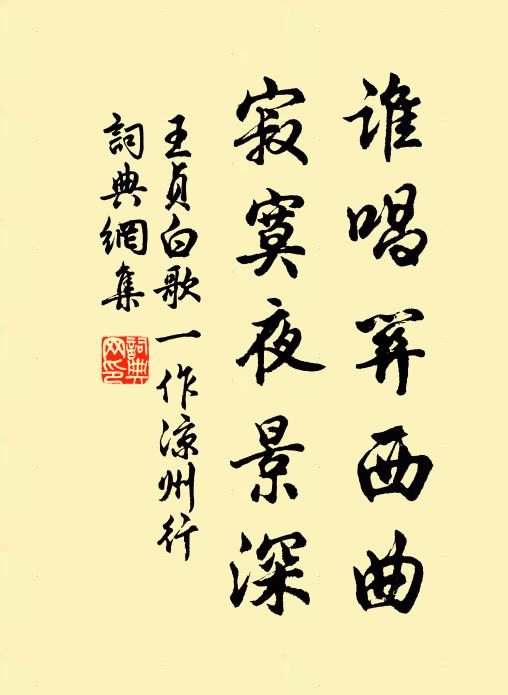 誰唱關西曲
寂寞夜景深
王貞白歌一作涼州行
詞典網集
詞典網印